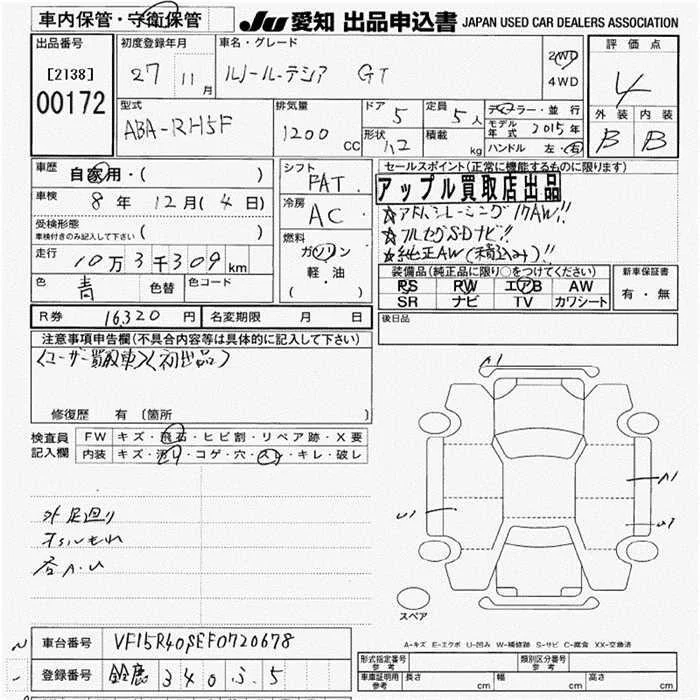 車内保管・守衛保管
JU 愛知 出品申込書 JAPAN USED CAR DEALERS ASSOCIATION
出品番号
[2138]
00172
初度登録年月
27 11月
車名・グレード
ルノールーテシア GT
2WD
4WD
評価点
4
外装 内装
B B
型式
ABA-RH5F
排気量
1200 cc
ドア 5
形状 ハコ
定員 5人
積載 kg
ディーラー・並行
モデル年式 2015年
ハンドル 左・右
車歴
自家用・( )
車検
8年12月(4日)
受検形態
車検付きのみ記入して下さい ( )
走行
10万3千309km
色 青 色替 色コード
シフト
FAT
冷房
AC
燃料
ガソリン
軽・油
( )
セールスポイント(正常に機能するものに限ります)
アップル買取店出品
☆アドバンレーシング17AW!!
☆フルセグSDナビ!!
☆純正AW(積込み)!!
装備品(純正品に限り○をつけてください)
PS PW エアB AW
SR ナビ TV カワシート
新車保証書
有・無
R券 16,320円 名変期限 月 日
後日品
注意事項申告欄(不具合内容等は具体的に記入して下さい)
<ユーザー買取車><初出品>
修復歴 有〔箇所 〕
検査員
記入欄
FW キズ・飛石・ヒビ割・リペア跡・X要
内装 キズ・汚れ・コゲ・穴・スレ・キレ・破レ
A1
A1
U1
U1
外足廻り
オイルもれ
各A.U
スペア
A-キズ E-エクボ U-凹み W-補修跡 S-サビ C-腐食 XX-交換済
車台番号 VF15R40SEF0720678
登録番号 鈴鹿 340 ふ 5
形式指定番号
参考
類別区分番号
参考
車庫証明用
参考
長さ cm 幅 cm 高さ cm